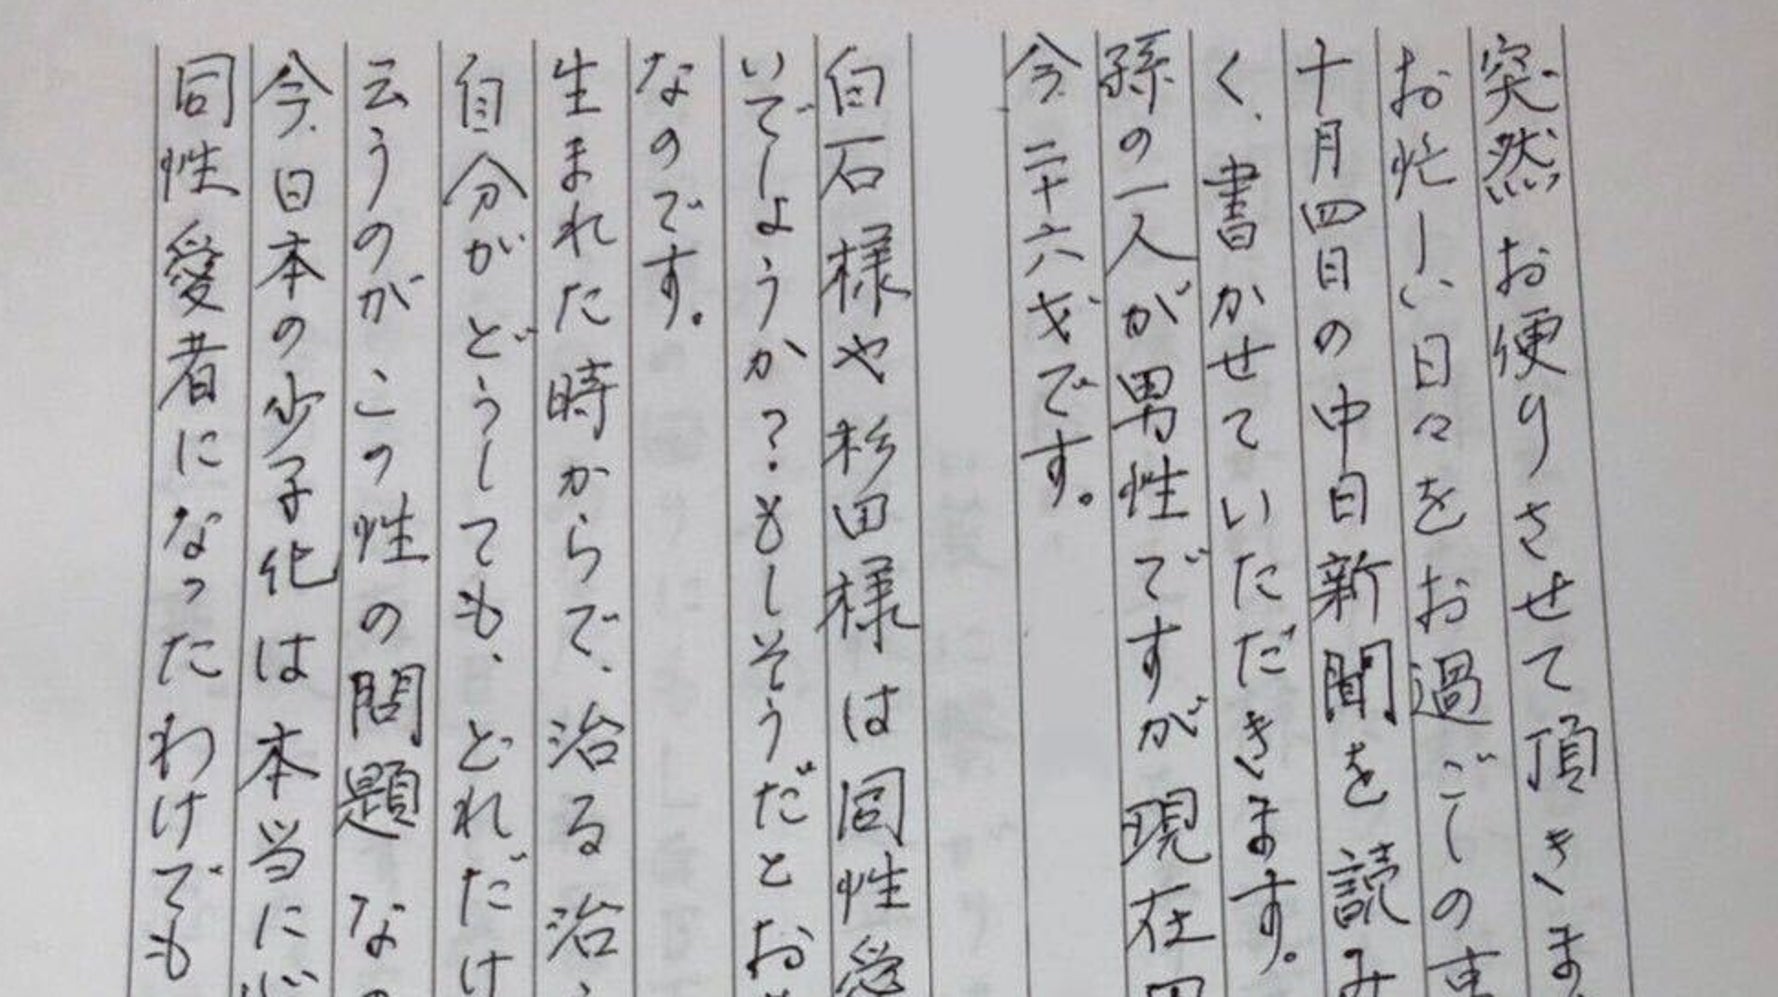 突然お便りさせて頂きま
お忙しい日々をお過ごしの事
十月四日の中日新聞を読み
く、書かせていただきます。
孫の一人が男性ですが現在同
今二十六才です。
白石様や杉田様は同性愛
いでしょうか?もしそうだとお
なのです。
生まれた時からで、治る治ら
自分がどうしても、どれだけ
云うのがこの性の問題なの
今、日本の少子化は本当に心
同性愛者になったわけでも